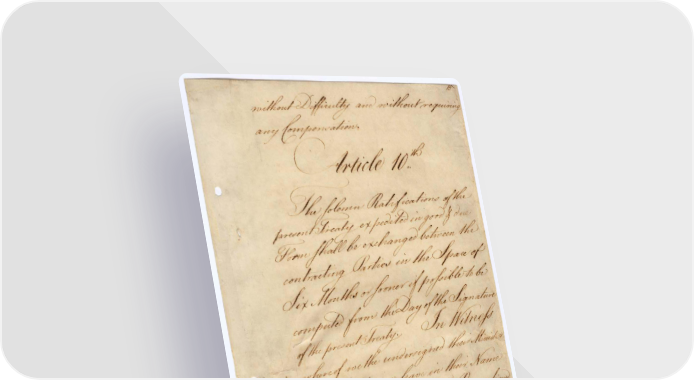 without Difficulty and without requiring
any Compensation.
Article 10th
The solemn Ratifications of the
present Treaty expedited in good & due
Form shall be exchanged between the
contracting Parties in the Space of
Six Months or sooner if possible to be
computed from the Day of the Signature
of the present Treaty. In Witness
whereof we the undersigned their
have in their Name